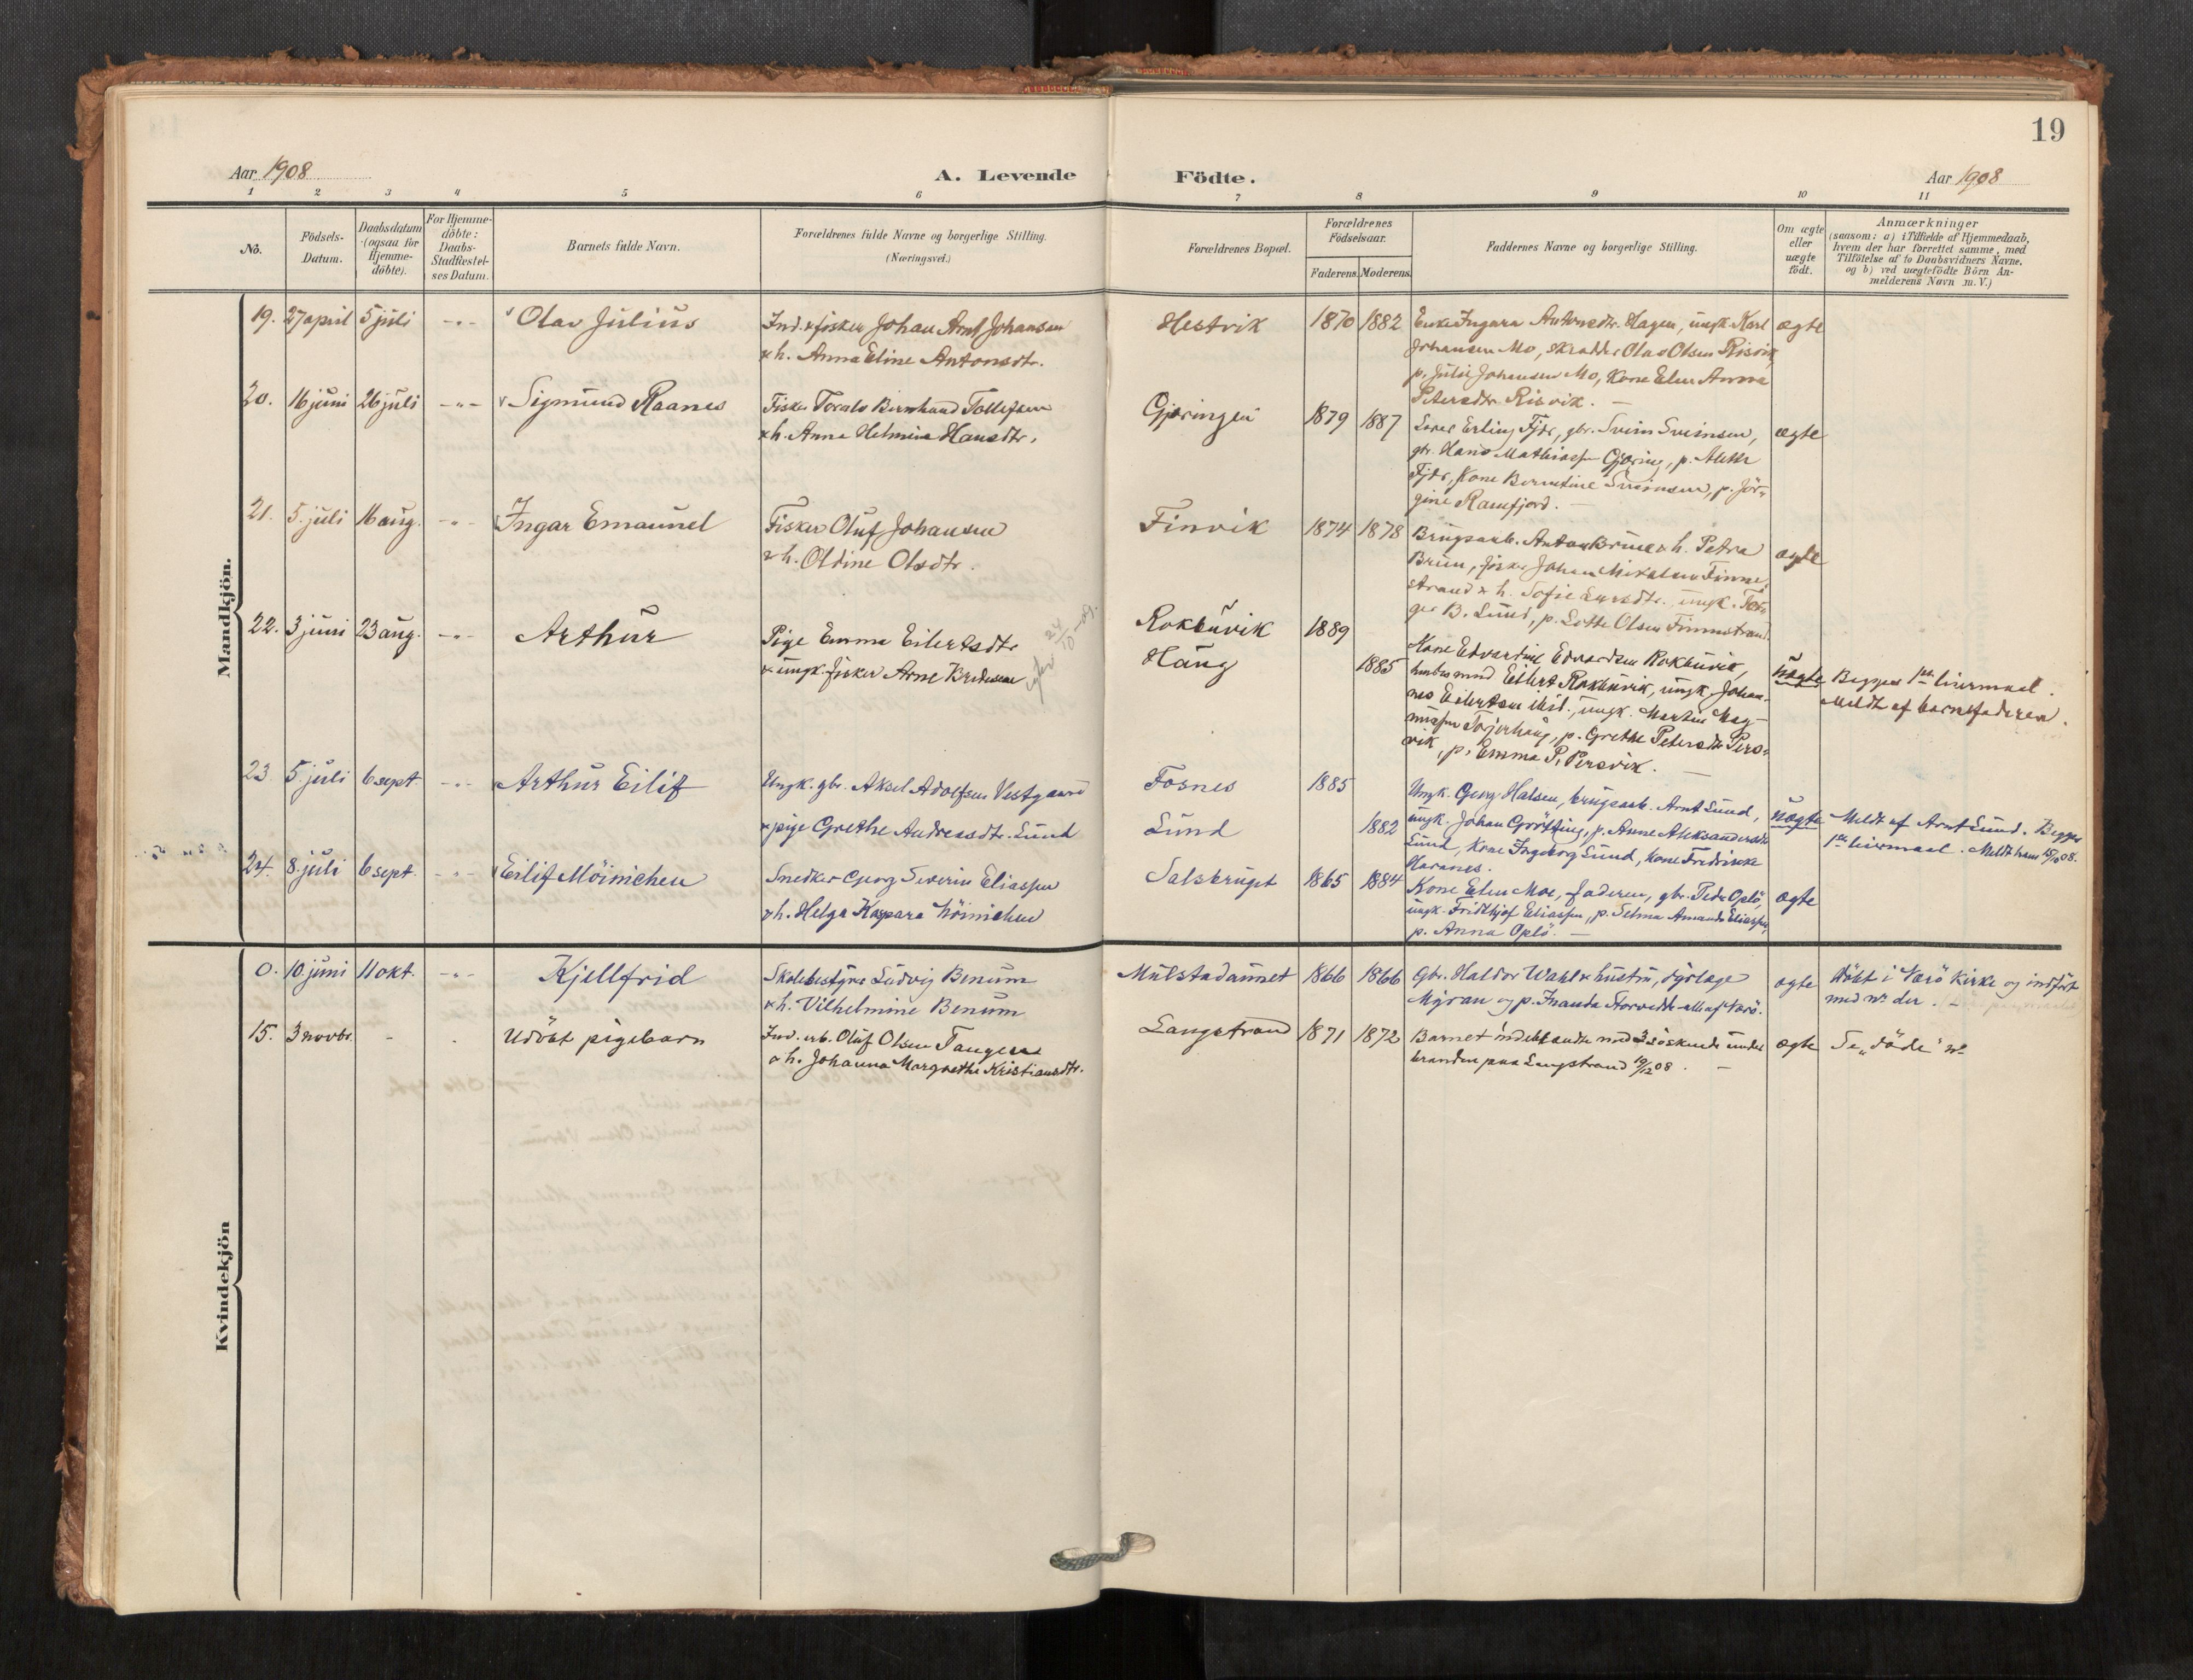 19
Aar 1908
A. Levende Födte.
Aar 1908
1 2 3 4 5 6 7 8 9 10 11
No.
Födsels-
Datum.
Daabsdatum
(ogsaa for
Hjemme-
döbte).
For Hjemme-
döbte:
Daabs-
Stadfæstel-
ses Datum.
Barnets fulde Navn.
Forældrenes fulde Navne og borgerlige Stilling.
(Næringsvei.)
Forældrenes Bopæl.
Forældrenes
Födselsaar.
Faderens. Moderens.
Faddernes Navne og borgerlige Stilling.
Om ægte
eller
uægte
födt.
Anmærkninger
(saasom: a) i Tilfælde af Hjemmedaab,
hvem der har forrettet samme, med
Tilföielse af to Daabsvidners Navne,
og b) ved uægtefödte Börn An-
melderens Navn m. V.)
Mandkjön.
19. 27 april 5 juli -"- Olav Julius
Ind. & fisker Johan Arnt Johansen
& h. Anna Eline Antonsdtr.
Hestvik 1870 1882
Enke Ingara Antonsdtr. Hagen, ungk. Karl
Johansen Mo, skrædder Olav Olsen Risvik,
p. Julie Johansen Mo, Kone Elen Anna
Petersdtr. Risvik. -
ægte
20. 16 juni 26 juli -"- Sigmund Raanes
Fisker Toralv Bernhard Tollefsen
& h. Anna Helmine Hansdtr.
Gjæringen 1879 1887
Erling Fjær, gbr. Svein Sveinsen,
gbr. Hans Mathiassen Gjæring, p. Aletta
Fjær, Kone Berntine Sveinsen, p. Jör-
gine Ramfjord. -
ægte
21. 5. juli 16 aug. -"- Ingar Emanuel
Fisker Oluf Johansen
& h. Oldine Olsdtr.
Finvik 1874 1878
Brugsarb. Anton Bruun & h. Petra
Bruun, fisker Johan Mikalsen Finne-
strand & h. Sofie Larsdtr., ungk. Tor-
ger B. Lund, p. Lotte Olsen Finnestrand.
ægte
22. 3 juni 23 aug. -"- Arthur
Pige Emma Eilertsdtr.
& ungk. fisker Arne Bredesen
24/10 -09.
Rokkuvik 1889
Haug 1885
Kone Edvardine Edvardsen Rokkuvik,
husbemand Eilert Rokkuvik, ungk. Johan-
nes Eilertsen ibid., ungk. Martin Mag-
nussen Tojerhaug, p. Grethe Petersdtr. Pers-
vik, p. Emma P. Persvik. -
uægte
Begges 1ste leiermaal.
Meldt af barnefaderen.
23 5. juli 6 sept. -"- Arthur Eilif
Ungk. gbr. Aksel Adolfsen Vestgaard
& pige Grethe Andreasdtr. Lund
Fosnes 1885
Lund 1882
Ungk. Georg Halsen, brugsarb. Arnt Lund,
ungk. Johan Grötting, p. Anne Aleksandersdtr.
Lund, Kone Ingeborg Lund, kone Fredrikke
Haranes.
uægte
Meldt af Arnt Lund. Begges
1ste leiermaal. Meldt ham 15/10 08.
24. 8. juli 6 sept. -"- Eilif Möinichen
Snedker Georg Severin Eliassen
& h. Helga Kaspara Möinichen
Salsbruget 1865 1884
Kone Elen Moe, faderen, gbr. Peder Oplö,
ungk. Fridthjof Eliassen, p. Selma Amanda Eliassen,
p. Anna Oplö. -
ægte
Kvindekjön
0. 10. juni 11 okt. -"- Kjellfrid
Skolebestyrer Ludvig Benum
& h. Vilhelmine Benum
Mulstadaunet 1866 1866
Gbr. Haldor Wahl & hustru, dyrlæge
Myran og p. Inanda Storvedde - alle af Nærö.
ægte
Döbt i Nærö kirke og indfört
med No. der. -
15. 3 novbr. - - Udöbt pigebarn
Ind. arb. Oluf Olsen Tangen
& h. Johanna Margrethe Kristiansdtr.
Langstrand 1871 1872
Barnet indebrændte med 3 söskende under
branden paa Langstrand 19/12 08. -
ægte
Se "döde" No.